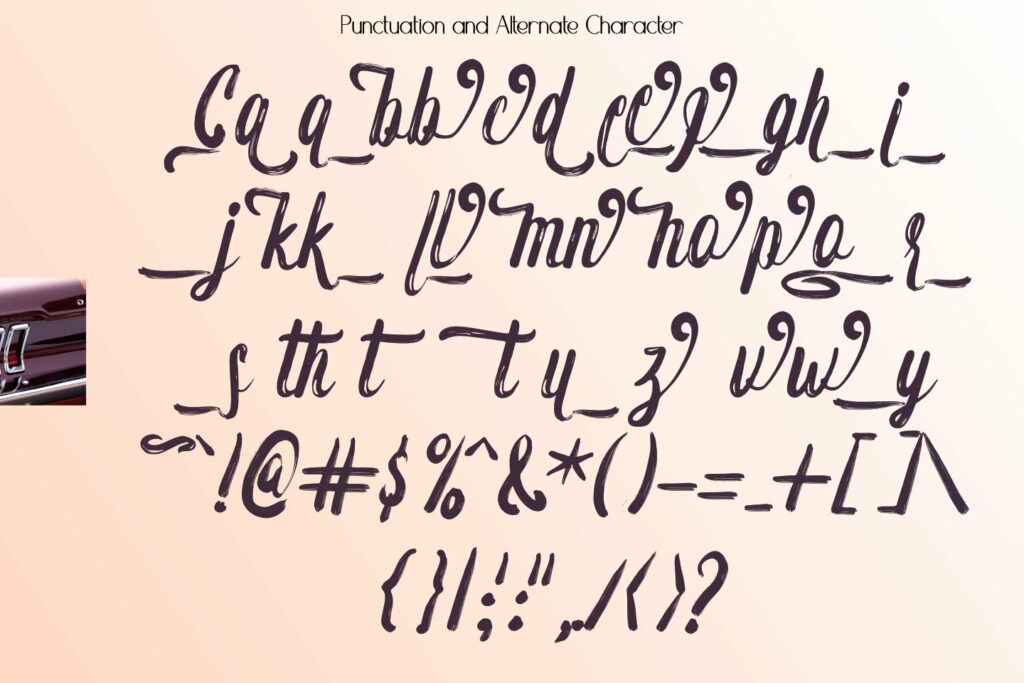 Punctuation and Alternate Character
Ca a bb c d ee p gh i
j kk ll mn ho p a r
s th t t y z v w y
~`!@#$%^&*()-=_+[]\
{}|;':",./<>?